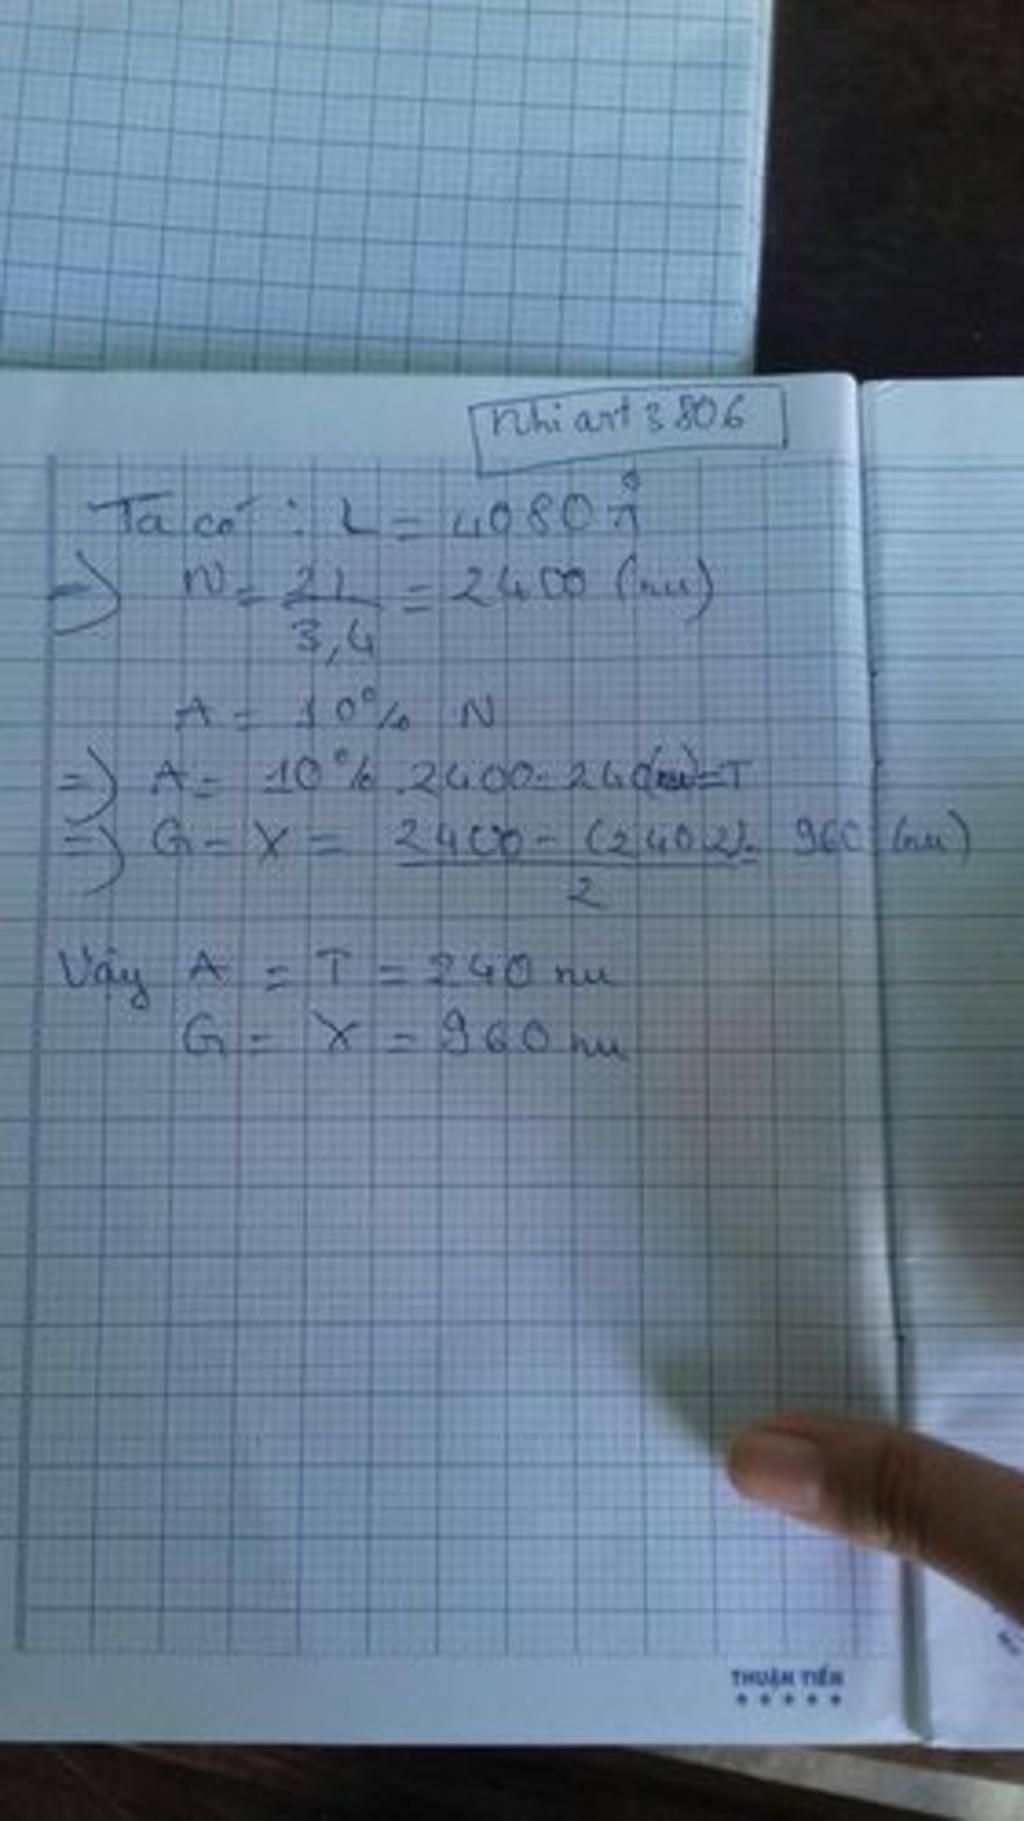 Nhi art 3806
Ta có : L = 4080 Å
=> N = 2L / 3,4 = 2400 (nu)
A = 10% N
=> A = 10% 2400 = 240(nu) = T
=> G = X = 2400 - (240.2) / 2 = 960 (nu)
Vậy A = T = 240 nu
G = X = 960 nu
THUẬN TIẾN